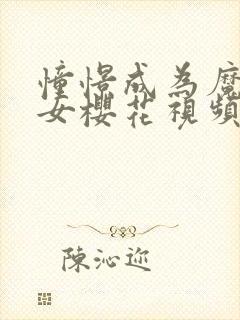 憧憬成為魔
女櫻花視頻
陳沁迩